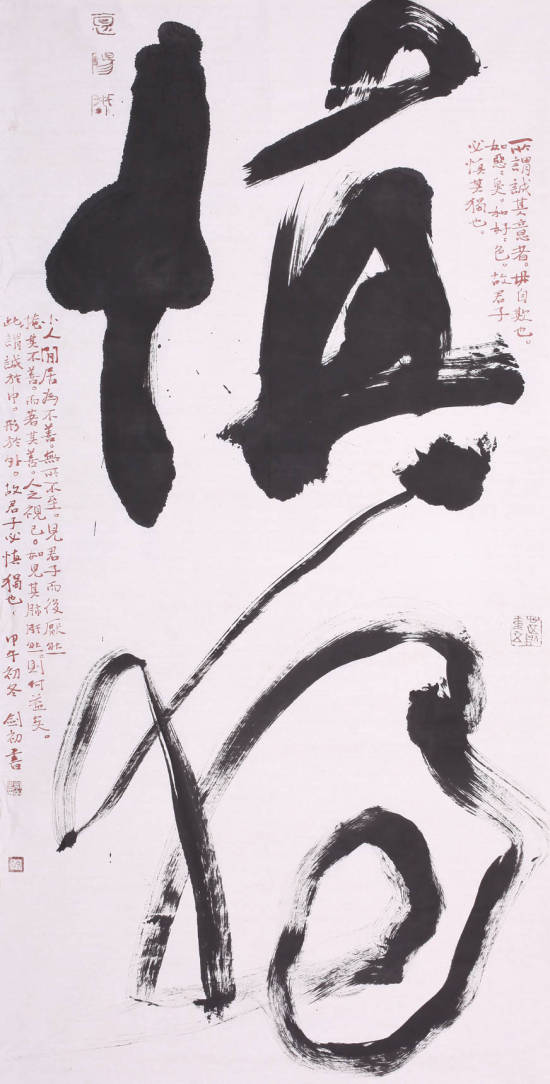 慎獨
所謂誠其意者。毋自欺也。
如惡〻臭。如好〻色。故君子
必慎其獨也。
小人閒居為不善。無所不至。見君子而後厭然
其不善。而著其善。人之視己。如見其肺肝然則何益矣。
此謂誠於中。形於外。故君子必慎獨也、甲午初冬 劍初書